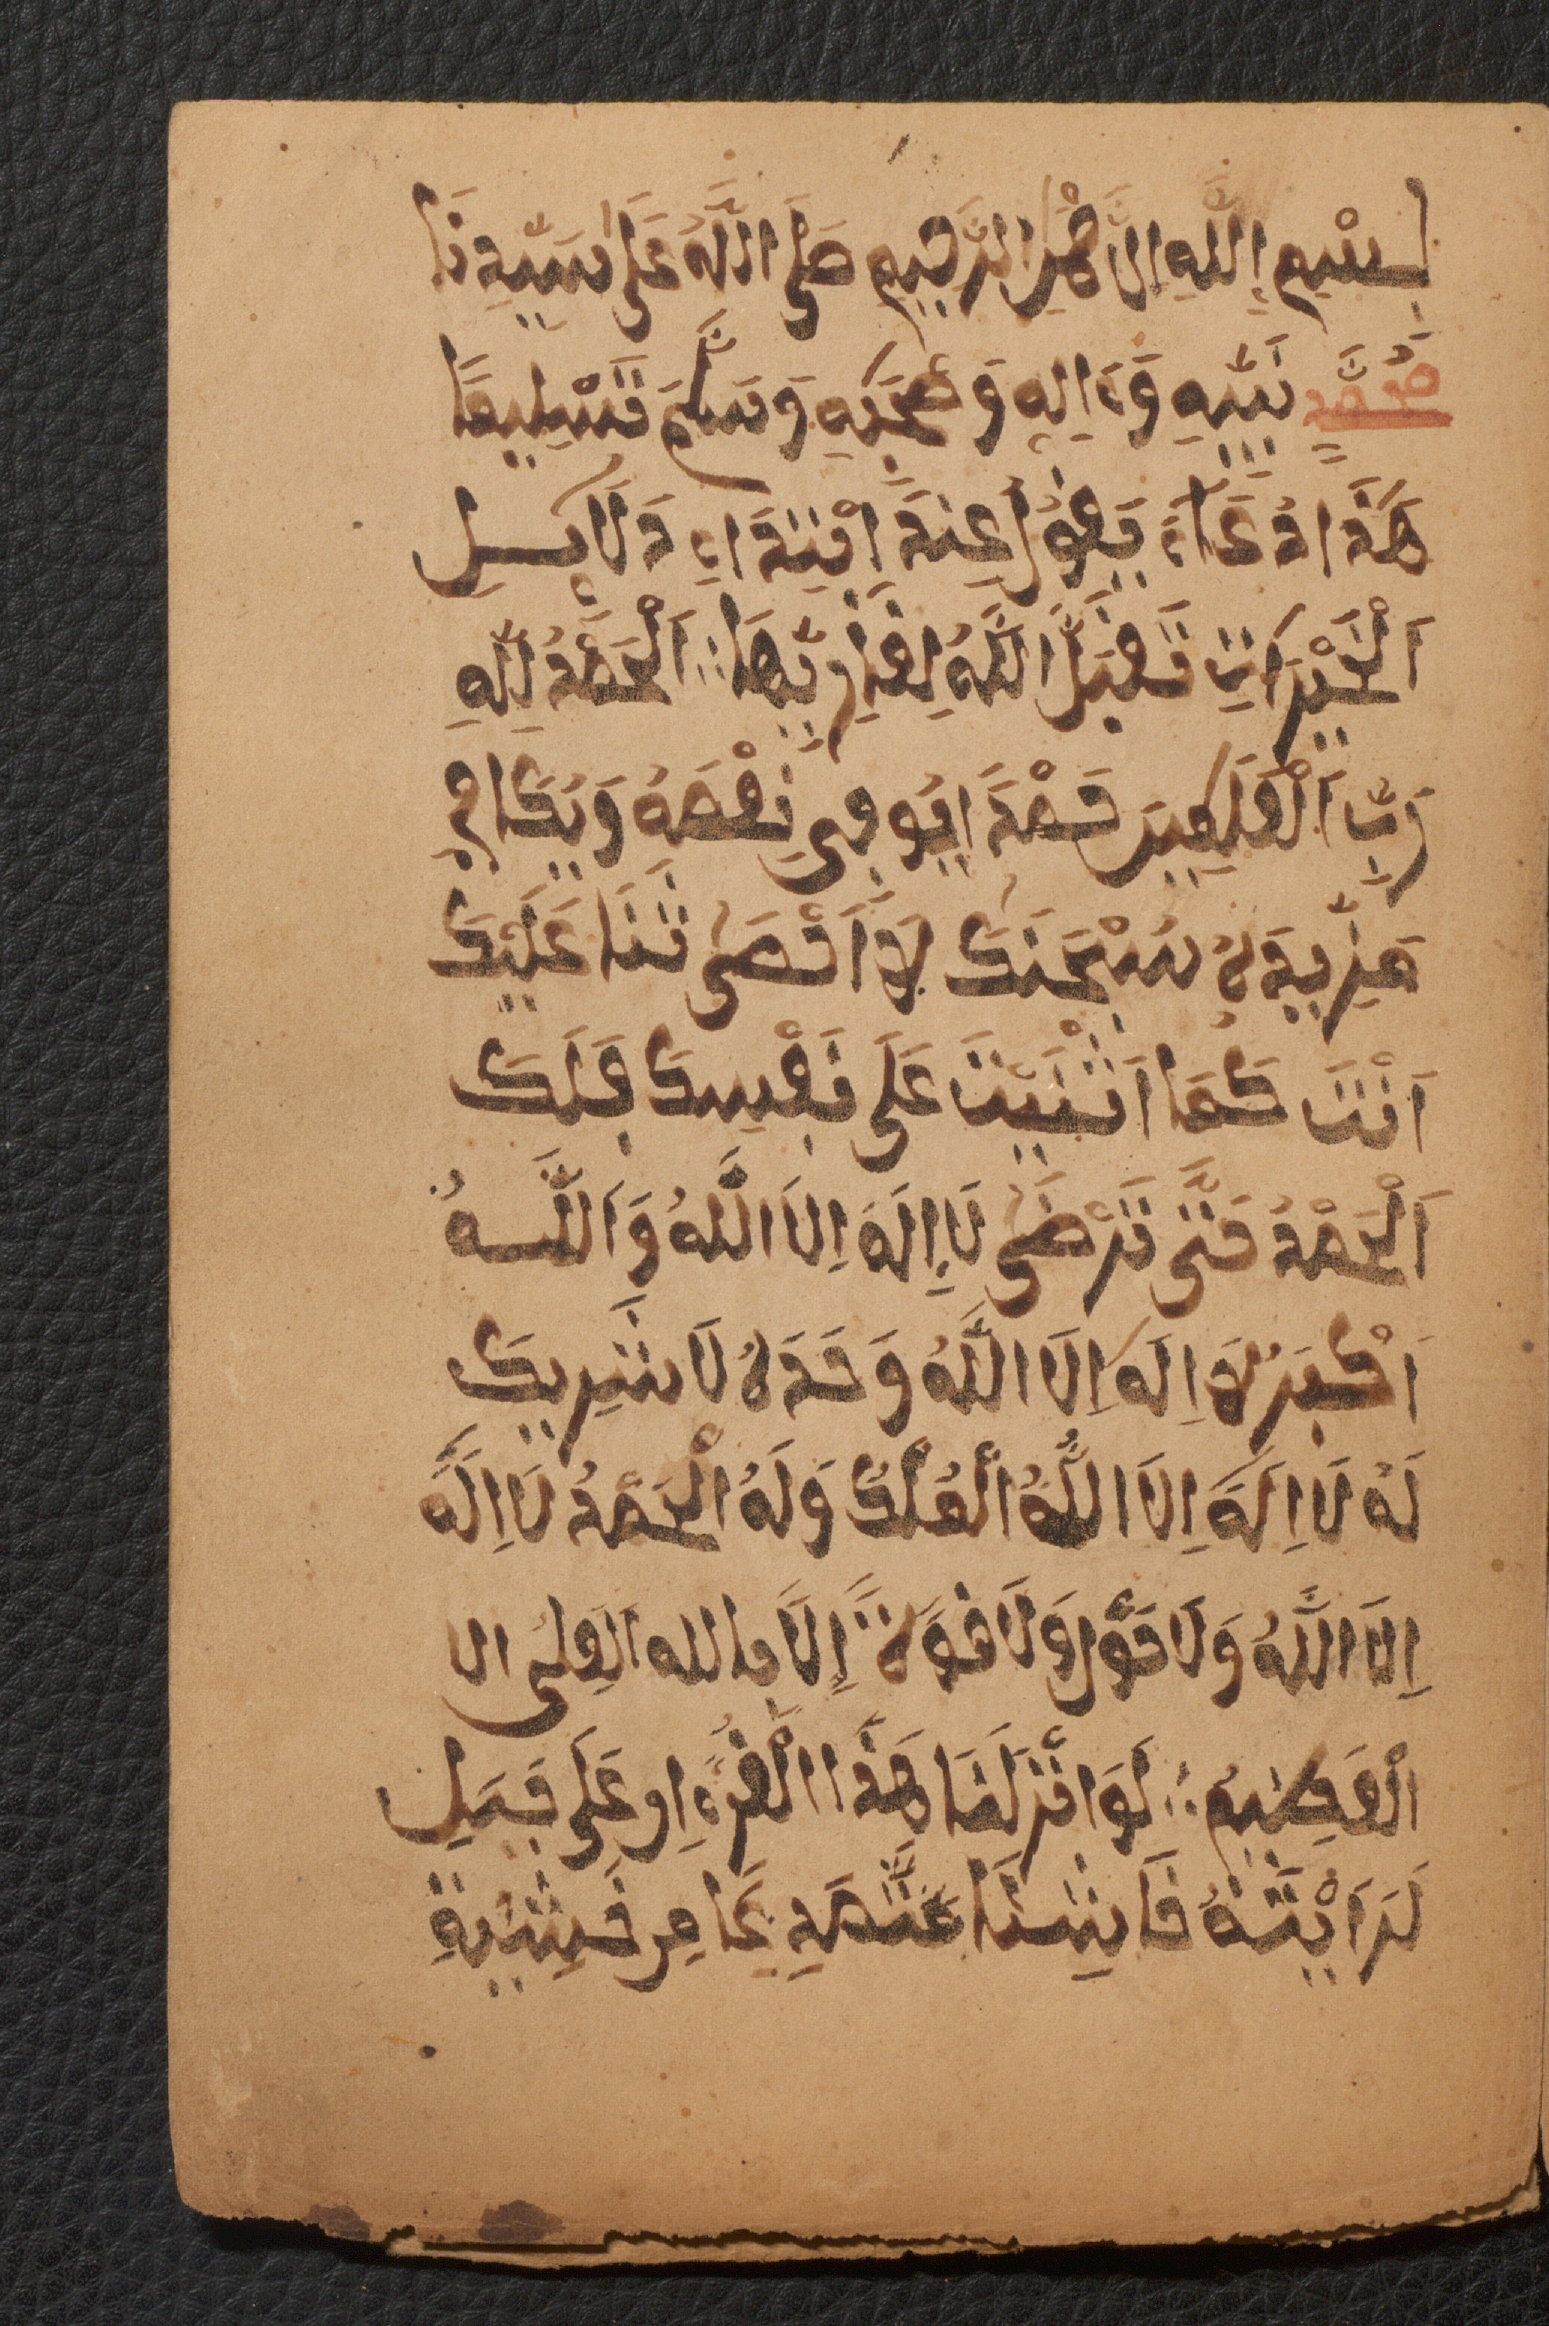 بِسْمِ اِللَّهِ اِلرَّحْمَٰنِ الرَّحِيمِ صَلَى اللَّهُ عَلَىٰ سَيِّدِنَا
مُحَمَّدٍ نَبِيِّهِ وَءَالِهِ وَصَحْبِهِ وَسَلَّمَ تَسْلِيمًا
هَذَا دُعَاءٌ يَقُولُ عِنْدَ اِبْتِدَاءِ دَلَائِلِ
اَلْخَيْرَاتِ تَقَبَلَّ اللَّهُ لِقَارِيِّهَا اَلْحَمْدُ لِلَّهِ
رَبِّ اَلْعَلَمِينَ حَمْدًا يُوَافِي نِعَمَهُ وَيُكَافِي
مَزِيدَهُ سُبْحَنَكَ لَا اَحْصَىٰ ثَنَا عَلَيْكَ
اَنْتَ كَمَا اَثْنَيْتَ عَلَى نَفْسِكَ فَلَكَ
اَلْحَمْدُ حَتَّى تَرْضَىٰ لَا اِلَهَ اِلَا اللَّهُ وَاَللَّهُ
اَكْبَرُ لَا اِلَهَ اِلَا اللَّهُ وَحَدَهُ لَا شَرِيكَ
لَهُ لَا اِلَهَ اِلَا اللَّهُ اَلْمُلْكُ وَلَهُ الْحَمْدُ لَا اِلَهَ
اِلَا اللَّهُ وَلَا حَوْلَ وَلَا قُوَةَ اِلَا بِاللهِ اَلْعَلِىِ الا
الْعَظِيمِ لَوَ اَنْزَلْنَا هَذَا الْقُرْءَانَ عَلَى جَبَلٍ
لَرَاَيْتَهُ خَاشِعًا مُتَصَدِّعًا مِنْ خَشْيَةِ